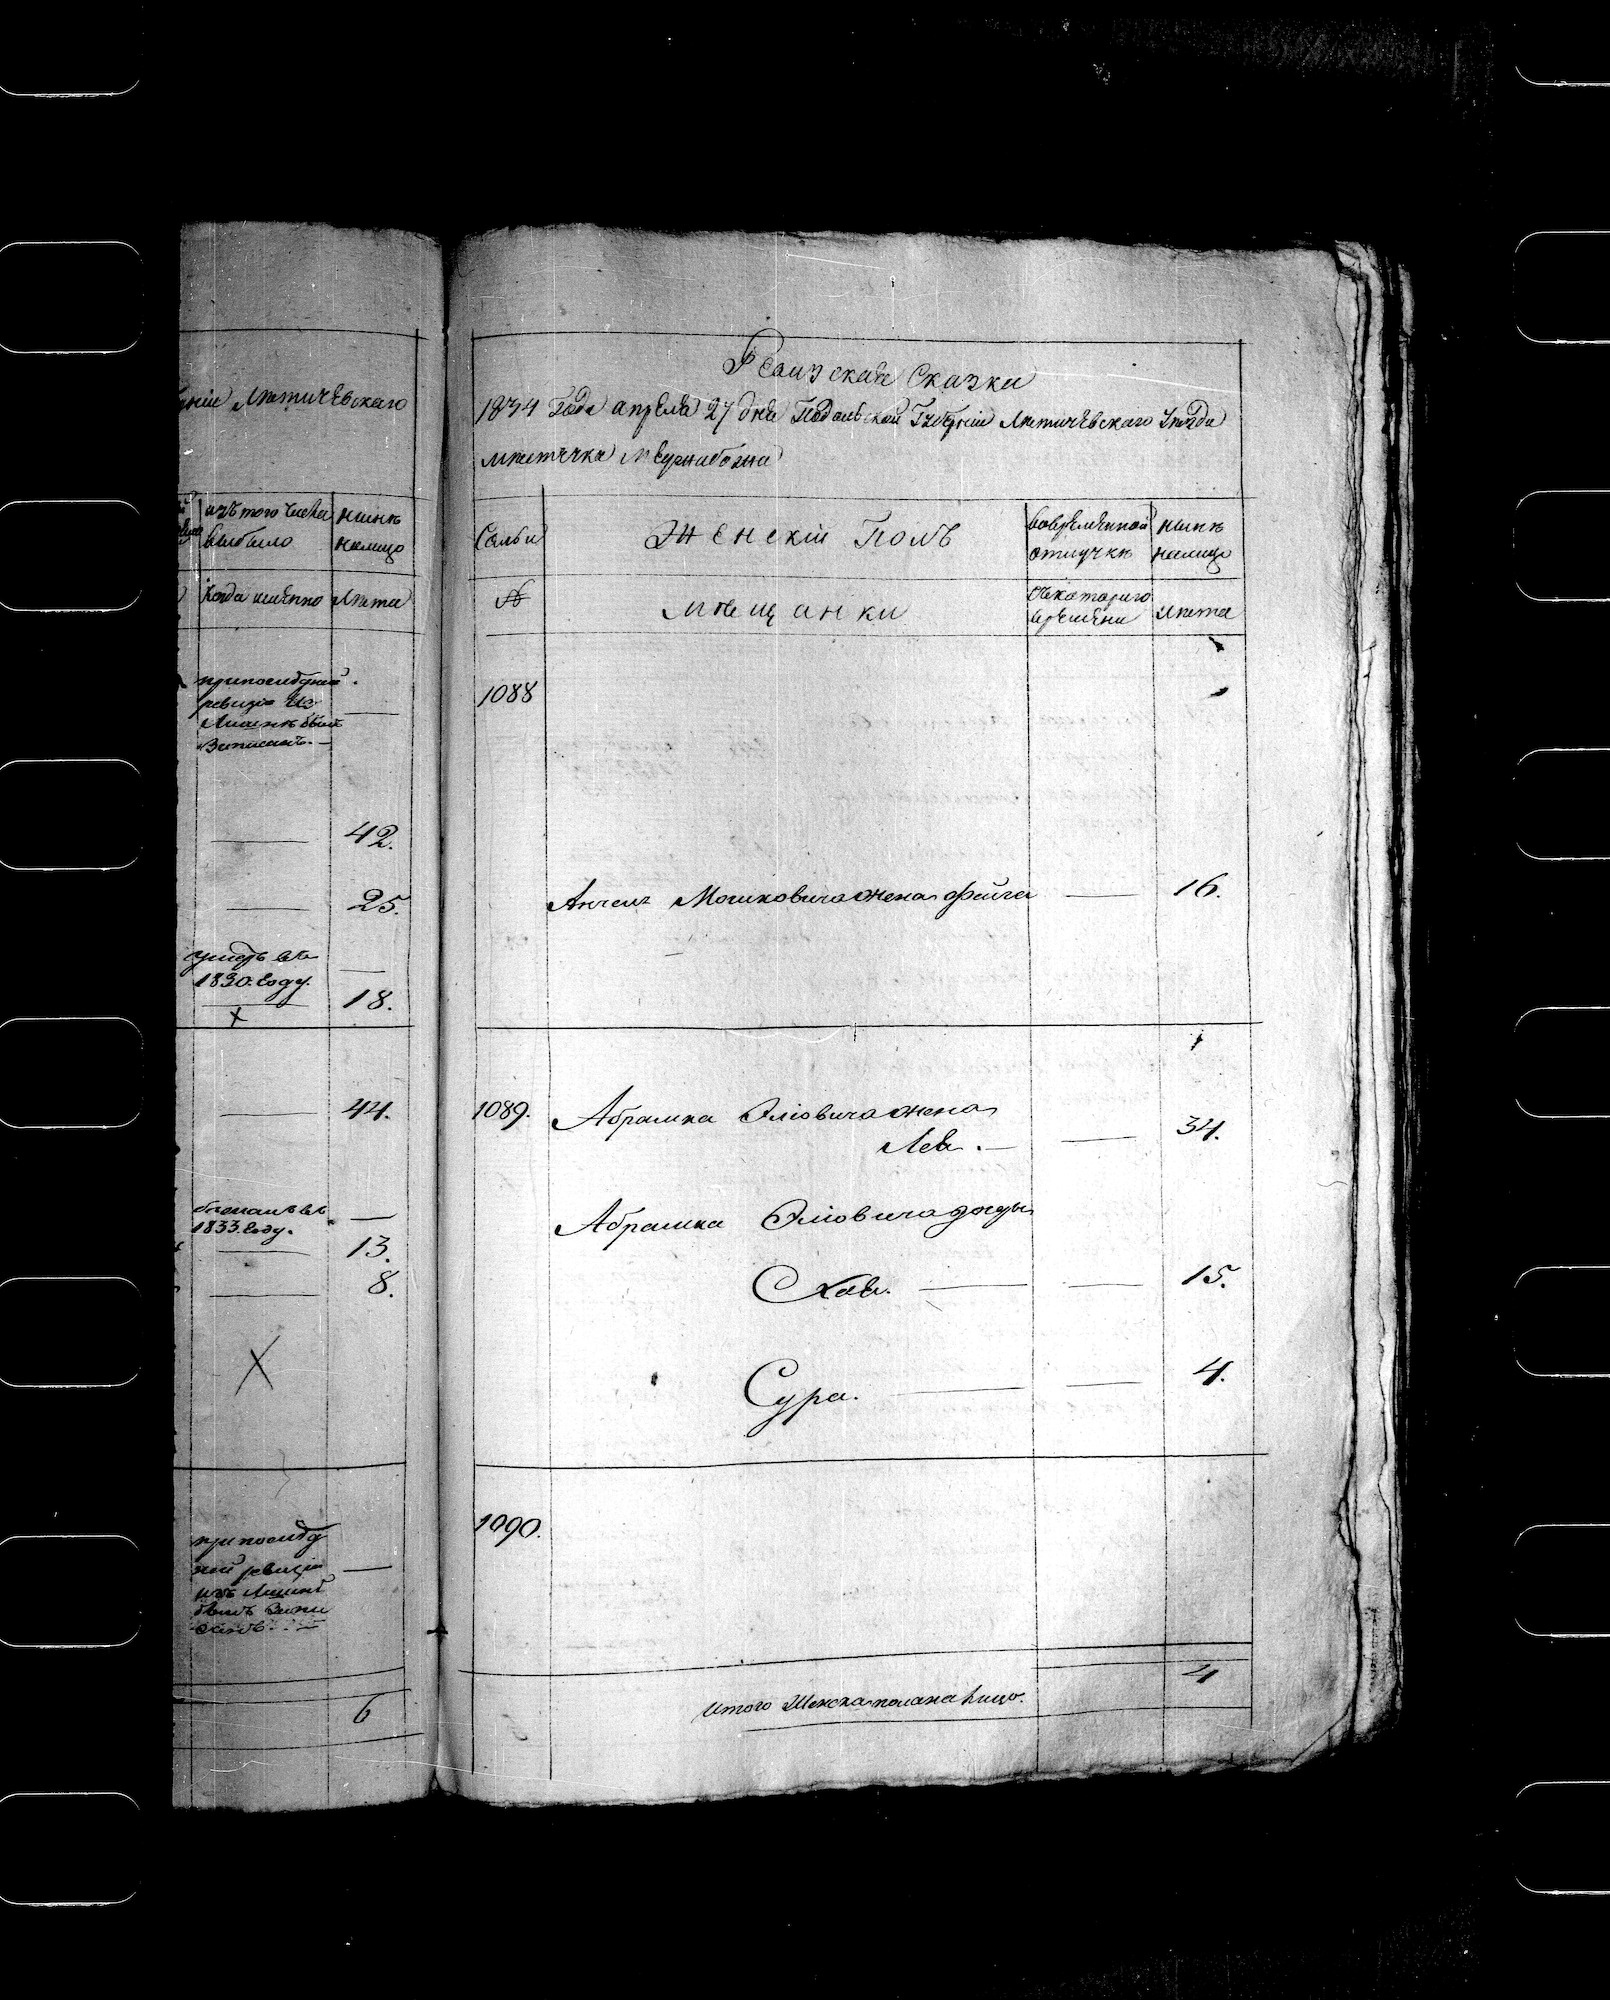 Летичевскаго
изъ того числа
выбыло
нынѣ
налицо
когда именно
Лѣта
при последней
ревизіи
былъ
записанъ. —
42.
25.
умеръ въ
1830. году.
18.
44.
въ
1833. году.
13.
8.
при послед
ней ревизіи
былъ запи
санъ. —
6
Ревизская Сказка
1834 Года апреля 27 дня Подольской Губерніи Летичевскаго Уезда
местечка Межибожа
Семьи
Женскій Полъ
во временной
отлучкѣ
нынѣ
налицо
№
мещанки
съ котораго
времени
лета
1088
Анчеля Мошковича жена Фейга — 16.
1089. Абрамка Эліовича жена
Лея. — — 34.
Абрамка Эліовича
Хая. — — 15.
Сура. — — 4.
1090.
Итого Женска пола на лицо. 4